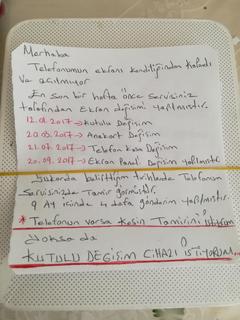 Merhaba
Telefonumun ekranı kendiliğinden karardı
Ve açılmıyor
En son bir hafta önce servisiniz
tarafından Ekran değişimi yapılmıştır.
→ Kutulu Değişim
20.03.2017 → Anakart Değişim
21.07.2017 → Telefon Kasa Değişim
20.09.2017 → Ekran Panel Değişim yapılmıştır
Yukarıda belirttiğim tarihlerde Telefonum
Servisinizde Tamir görmüştür.
9 Ay içinde 4 defa gönderim yapılmıştır.
* Telefonun varsa Kesin Tamirini istiyorum
Yoksa da
KUTULU DEĞİŞİM CİHAZI İSTİYORUM